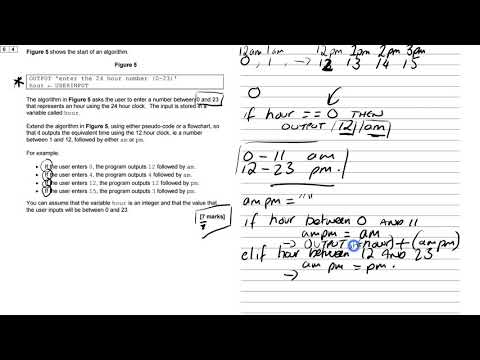 0 4
Figure 5 shows the start of an algorithm.
Figure 5
OUTPUT 'enter the 24 hour number (0-23)'
hour ← USERINPUT
The algorithm in Figure 5 asks the user to enter a number between 0 and 23
that represents an hour using the 24 hour clock. The input is stored in a
variable called hour.
Extend the algorithm in Figure 5, using either pseudo-code or a flowchart, so
that it outputs the equivalent time using the 12 hour clock, ie a number
between 1 and 12, followed by either am or pm.
For example:
• If the user enters 0, the program outputs 12 followed by am.
• If the user enters 4, the program outputs 4 followed by am.
• If the user enters 12, the program outputs 12 followed by pm.
• If the user enters 15, the program outputs 3 followed by pm.
You can assume that the variable hour is an integer and that the value that
the user inputs will be between 0 and 23.
[7 marks]
12am 1am 12pm 1pm 2pm 3pm
0, 1, → 12 13 14 15
0
if hour == 0 THEN
OUTPUT 12 am
0 - 11 am
12 - 23 pm.
ampm = ""
if hour between 0 AND 11
ampm = am
→ OUTPUT (hour) + (ampm)
elif hour between 12 AND 23
→ am pm = pm.